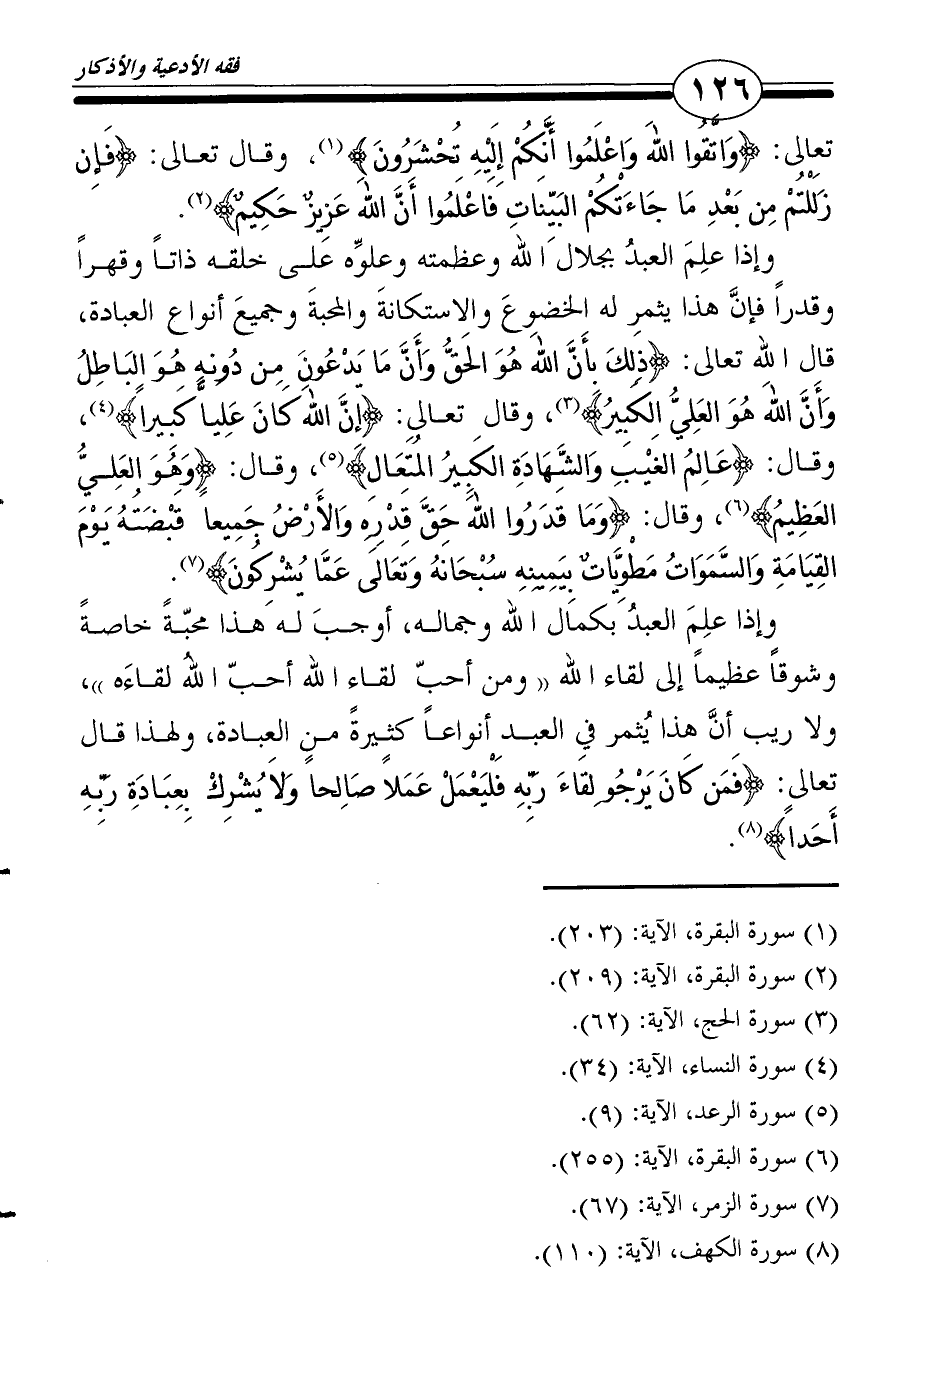 فقه الأدعية والأذكار
١٢٦
تعالى: ﴿وَاتَّقُوا اللهَ وَاعْلَمُوا أَنَّكُمْ إِلَيْهِ تُحْشَرُونَ﴾(١)، وقال تعالى: ﴿فَإِن
زَلَلْتُمْ مِن بَعْدِ مَا جَاءَتْكُمْ البَيِّنَاتِ فَاعْلَمُوا أَنَّ اللهَ عَزِيزٌ حَكِيمٌ﴾(٢).
وإذا علِمَ العبدُ بجلال الله وعظمته وعلوِّه على خلقه ذاتاً وقهراً
وقدراً فإنَّ هذا يثمر له الخضوعَ والاستكانةَ والمحبةَ وجميعَ أنواع العبادة،
قال الله تعالى: ﴿ذَلِكَ بِأَنَّ اللهَ هُوَ الحَقُّ وَأَنَّ مَا يَدْعُونَ مِن دُونِهِ هُوَ البَاطِلُ
وَأَنَّ اللهَ هُوَ العَلِيُّ الكَبِيرُ﴾(٣)، وقال تعالى: ﴿إِنَّ اللهَ كَانَ عَلِياًّ كَبِيراً﴾(٤)،
وقال: ﴿عَالِمُ الغَيْبِ وَالشَّهَادَةِ الكَبِيرُ المُتَعَال﴾(٥)، وقال: ﴿وَهُوَ العَلِيُّ
العَظِيمُ﴾(٦)، وقال: ﴿وَمَا قَدَرُوا اللهَ حَقَّ قَدْرِهِ وَالأَرْضُ جَمِيعاً قَبْضَتُهُ يَوْمَ
القِيَامَةِ وَالسَّمَوَاتُ مَطْوِيَّاتٌ بِيَمِينِهِ سُبْحَانَهُ وَتَعَالَى عَمَّا يُشْرِكُونَ﴾(٧).
وإذا علِمَ العبدُ بكمال الله وجماله، أوجبَ له هذا محبّةً خاصةً
وشوقاً عظيماً إلى لقاء الله (( ومن أحبّ لقاء الله أحبّ اللهُ لقاءَه ))،
ولا ريب أنَّ هذا يُثمر في العبد أنواعاً كثيرةً من العبادة، ولهذا قال
تعالى: ﴿فَمَن كَانَ يَرْجُو لِقَاءَ رَبِّهِ فَلْيَعْمَلْ عَمَلاً صَالِحاً وَلَا يُشْرِكْ بِعِبَادَةِ رَبِّهِ
أَحَداً﴾(٨).
(١) سورة البقرة، الآية: (٢٠٣).
(٢) سورة البقرة، الآية: (٢٠٩).
(٣) سورة الحج، الآية: (٦٢).
(٤) سورة النساء، الآية: (٣٤).
(٥) سورة الرعد، الآية: (٩).
(٦) سورة البقرة، الآية: (٢٥٥).
(٧) سورة الزمر، الآية: (٦٧).
(٨) سورة الكهف، الآية: (١١٠).